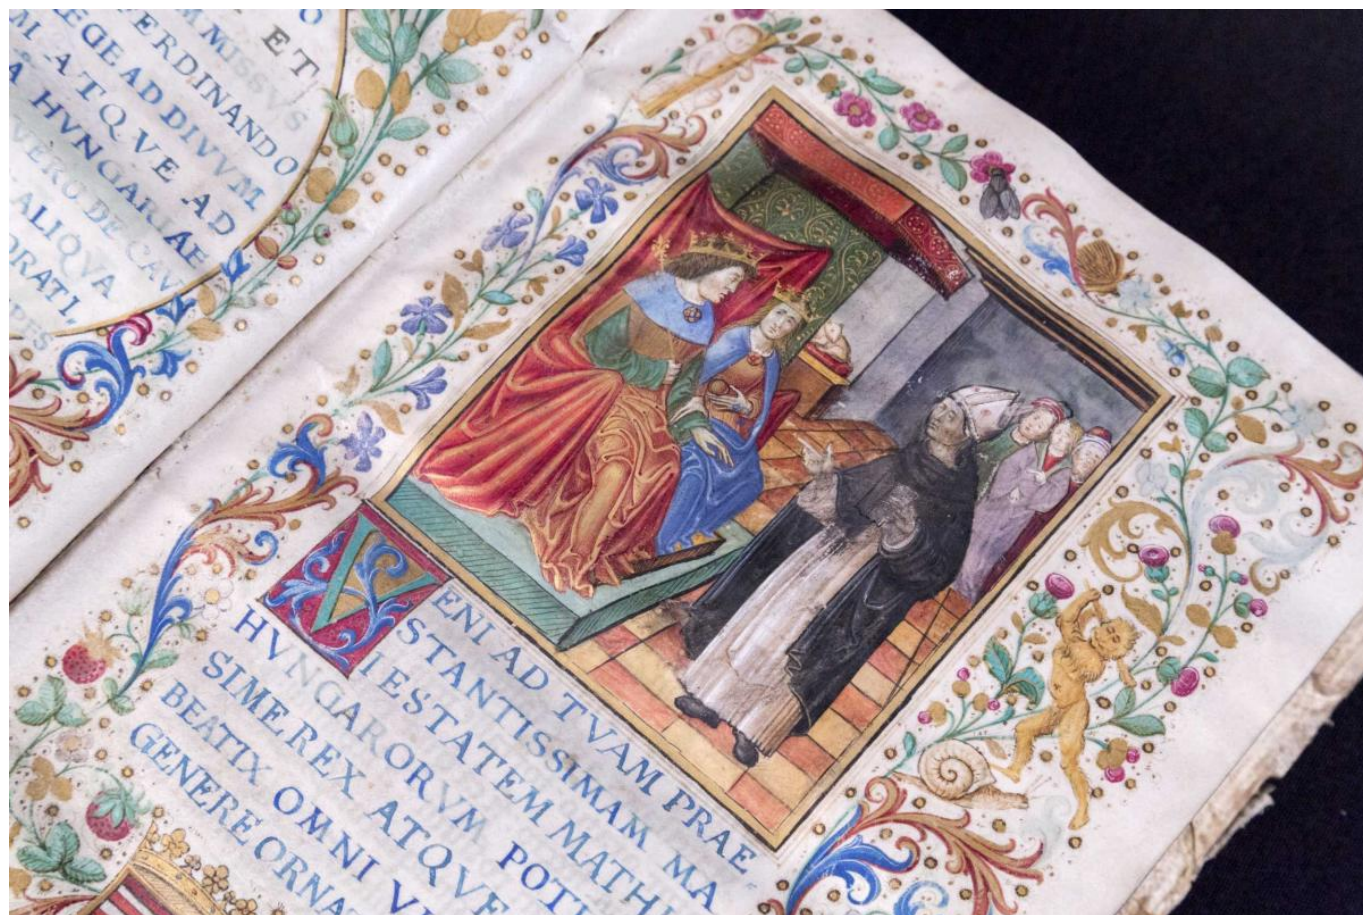 ET
MISSVS
FERDINANDO
AD DIVVM
ATQVE AD
HVNGARIAE
VERO DE CAV
ALIQVA
DRATI.
VENI AD TVAM PRAE
STANTISSIMAM MA
IESTATEM MATHI
HVNGARORVM POT
SIME REX ATQVE
BEATIX OMNI VI
GENERE ORNA